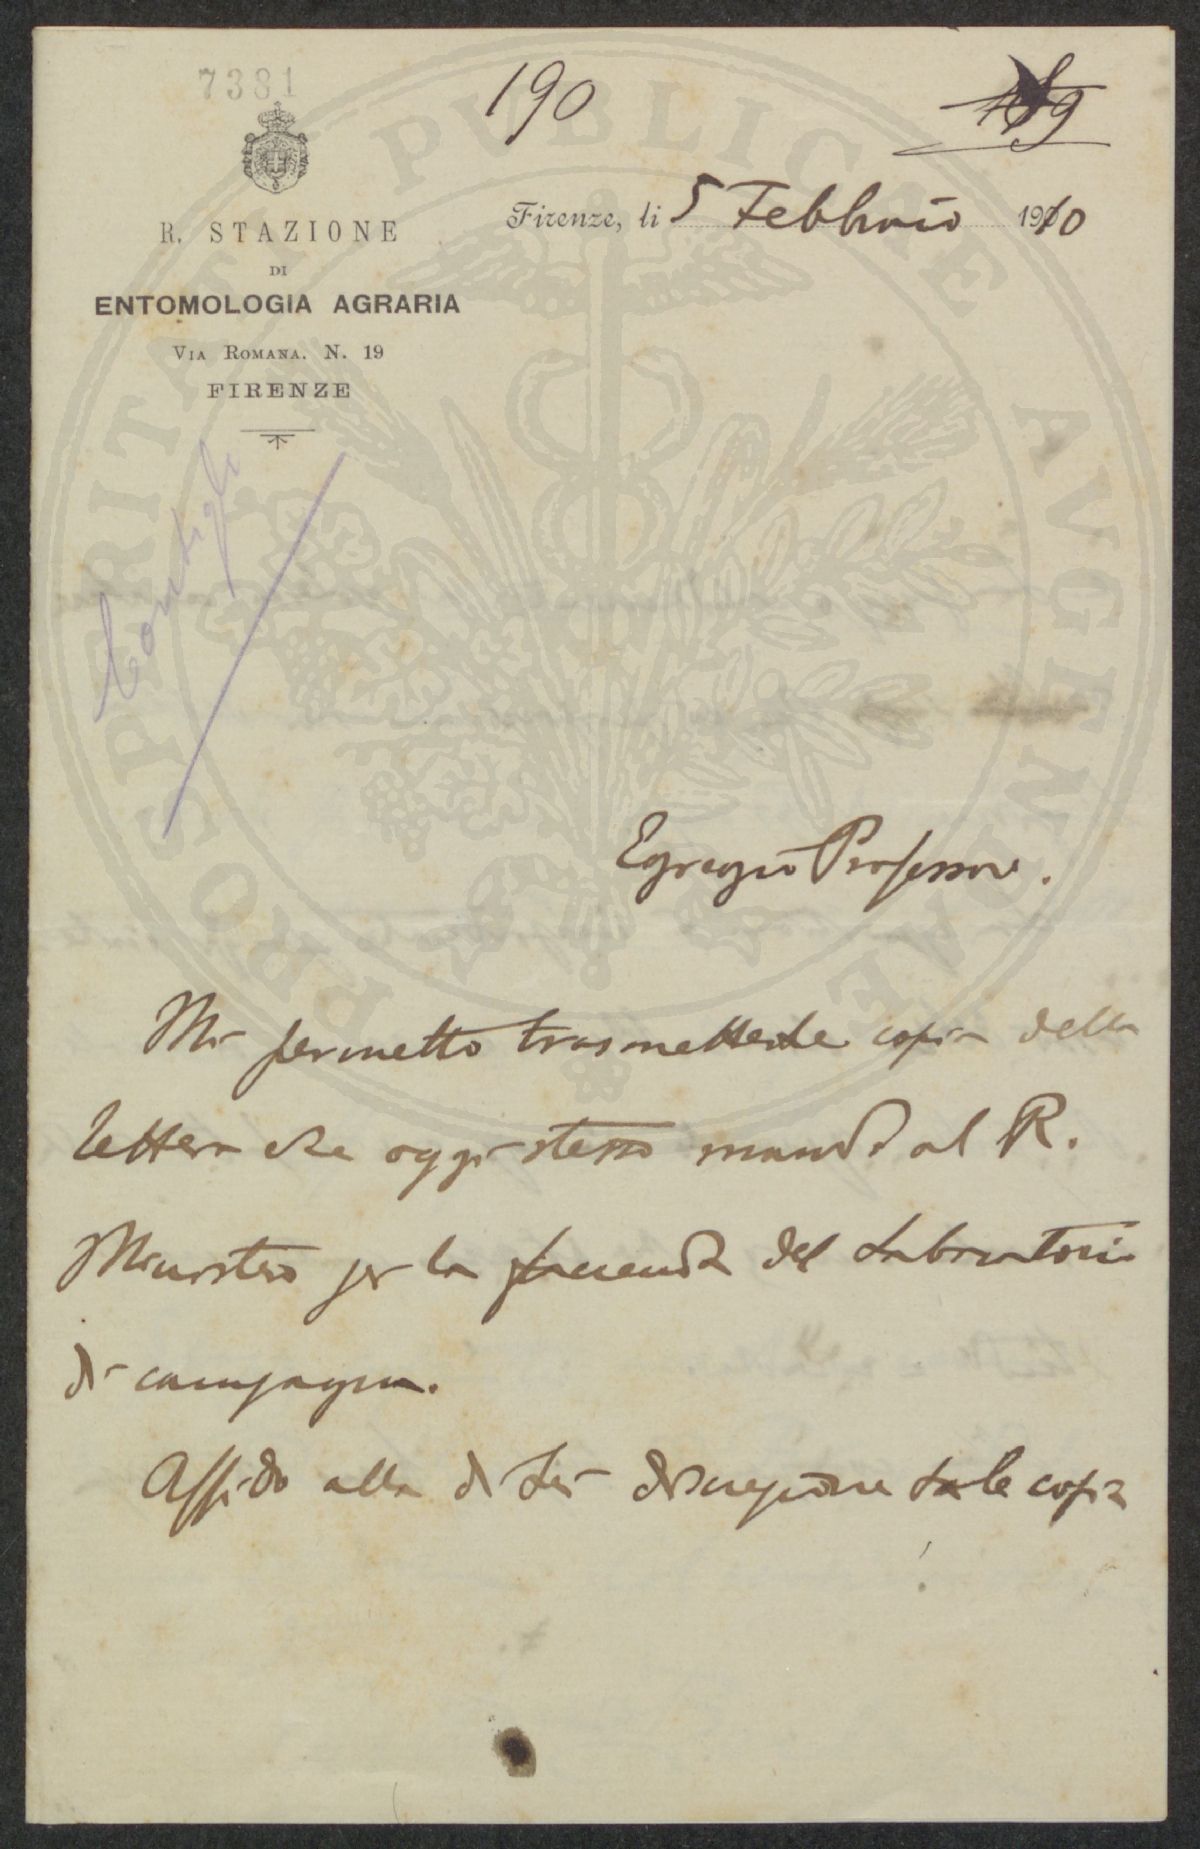 7381
190
189
R. STAZIONE
DI
ENTOMOLOGIA AGRARIA
VIA ROMANA. N. 19
FIRENZE
Firenze, li 5 Febbraio 1910
PROSPERITATI PUBLICAE AVGENDAE
Egregio Professore.
Mi permetto trasmetterle copia della
lettera che oggi stesso mando al R.
Ministero per la faccenda del Laboratorio
di campagna.
Affido alla di Lei discrezione tale copia